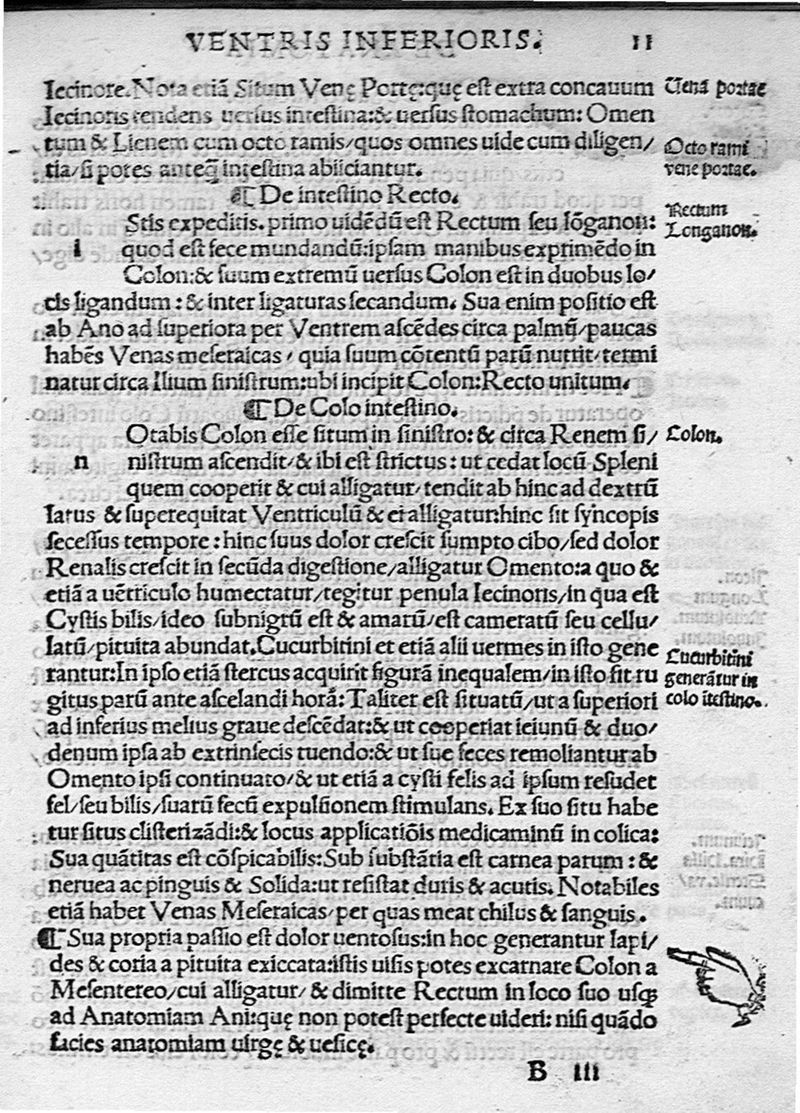 VENTRIS INFERIORIS. 11
Iecinore. Nota etiā Situm Venę Portę: quę est extra concauum
Venā portae
Iecinoris tendens uersus intestina: & uersus stomachum: Omen
tum & Lienem cum octo ramis/quos omnes uide cum diligen/
Octo rami
tia/si potes anteq̄ intestina abiiciantur.
vene portae.
¶ De intestino Recto.
Stis expeditis. primo uidēdū est Rectum seu lōganon:
Rectum
i quod est fece mundandū: ipsam manibus exprimēdo in
Longanon.
Colon: & suum extremū uersus Colon est in duobus lo/
cis ligandum: & inter ligaturas secandum. Sua enim positio est
ab Ano ad superiora per Ventrem ascēdes circa palmū/paucas
habēs Venas meseraicas/ quia suum cōtentū parū nutrit/termi
natur circa Ilium sinistrum: ubi incipit Colon: Recto unitum.
¶ De Colo intestino.
Otabis Colon esse situm in sinistro: & circa Renem si/
Colon.
n nistrum ascendit/& ibi est strictus: ut cedat locū Spleni
quem cooperit & cui alligatur/tendit ab hinc ad dextrū
latus & superequitat Ventriculū & ei alligatur: hinc fit syncopis
secessus tempore: hinc suus dolor crescit sumpto cibo/sed dolor
Renalis crescit in secūda digestione/alligatur Omento: a quo &
etiā a uētriculo humectatur/tegitur penula Iecinoris/in qua est
Cystis bilis/ideo subnigrū est & amarū/est cameratū seu cellu/
latū/pituita abundat. Cucurbitini et etiā alii uermes in isto gene
Cucurbitini
rantur: In ipso etiā stercus acquirit figurā inequalem/in isto fit ru
generātur in
gitus parū ante ascelandi horā: Taliter est situatū/ut a superiori
colo ītestino.
ad inferius melius graue descēdat: & ut cooperiat ieiunū & duo/
denum ipsa ab extrinsecis tuendo: & ut sue feces remoliantur ab
Omento ipsi continuato/& ut etiā a cysti felis ad ipsum resudet
fel/seu bilis/suarū fecū expulsionem stimulans. Ex suo situ habe
tur situs clisterizādi: & locus applicatiōis medicaminū in colica:
Sua quātitas est cōspicabilis: Sub substātia est carnea parum: &
neruea ac pinguis & Solida: ut resistat duris & acutis. Notabiles
etiā habet Venas Meseraicas/per quas meat chilus & sanguis.
¶ Sua propria passio est dolor uentosus: in hoc generantur lapi/
des & coria a pituita exiccata: istis uisis potes excarnare Colon a
Mesentereo/cui alligatur/ & dimitte Rectum in loco suo usq;
ad Anatomiam Ani: quę non potest perfecte uideri: nisi quādo
facies anatomiam uirgę & uesicę.
B III